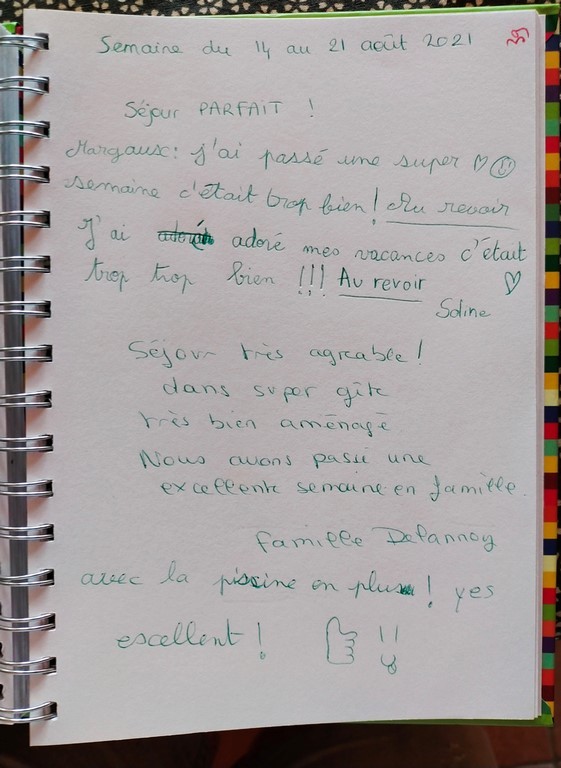 Semaine du 14 au 21 août 2021
Séjour PARFAIT !
Margaux: j'ai passé une super ♡ ☺
semaine c'était trop bien ! Au revoir
J'ai adoré mes vacances c'était
trop trop bien !!! Au revoir ♡
Soline
Séjour très agréable !
dans super gîte
très bien aménagé
Nous avons passé une
excellente semaine en famille.
famille Delannoy
avec la piscine en plus ! yes
escellent !